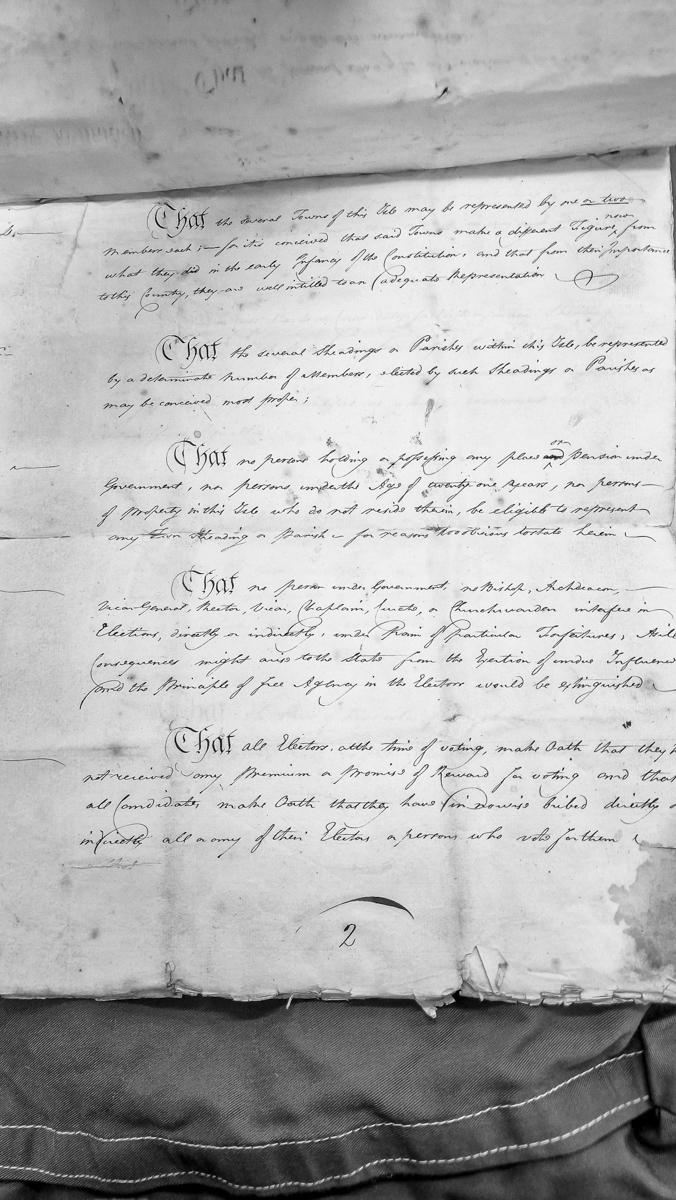 That the several Towns of this Isle may be represented by one or two
members each; — for it is conceived that said Towns make a different Figure now from
what they did in the early Infancy of the Constitution, and that from their Importance
to this County, they are well intitled to an adequate Representation
That the several Sheadings or Parishes within this Isle, be represented
by a determinate number of Members, elected by such Sheadings or Parishes as
may be conceived most proper;
That no persons holding or possessing any place or Pension under
Government, nor persons under the Age of twenty one Years, nor persons
of Property in this Isle who do not reside therein, be eligible to represent
any Town Sheading or Parish — for reasons too obvious to state herein
That no person under Government, no Bishop, Archdeacon,
Vicar General, Rector, Vicar, Chaplain, Curate, or Churchwarden interfere in
Elections, directly or indirectly, under Pain of particular Forfeitures,
Consequences might arise to the State from the Exertion of undue Influence
and the Principle of free Agency in the Electors would be extinguished
That all Electors, at the time of voting, make Oath that they
not received any Premium or Promise of Reward for voting and that
all Candidates make Oath that they have in nowise bribed directly
indirectly all or any of their Electors or persons who vote for them
2